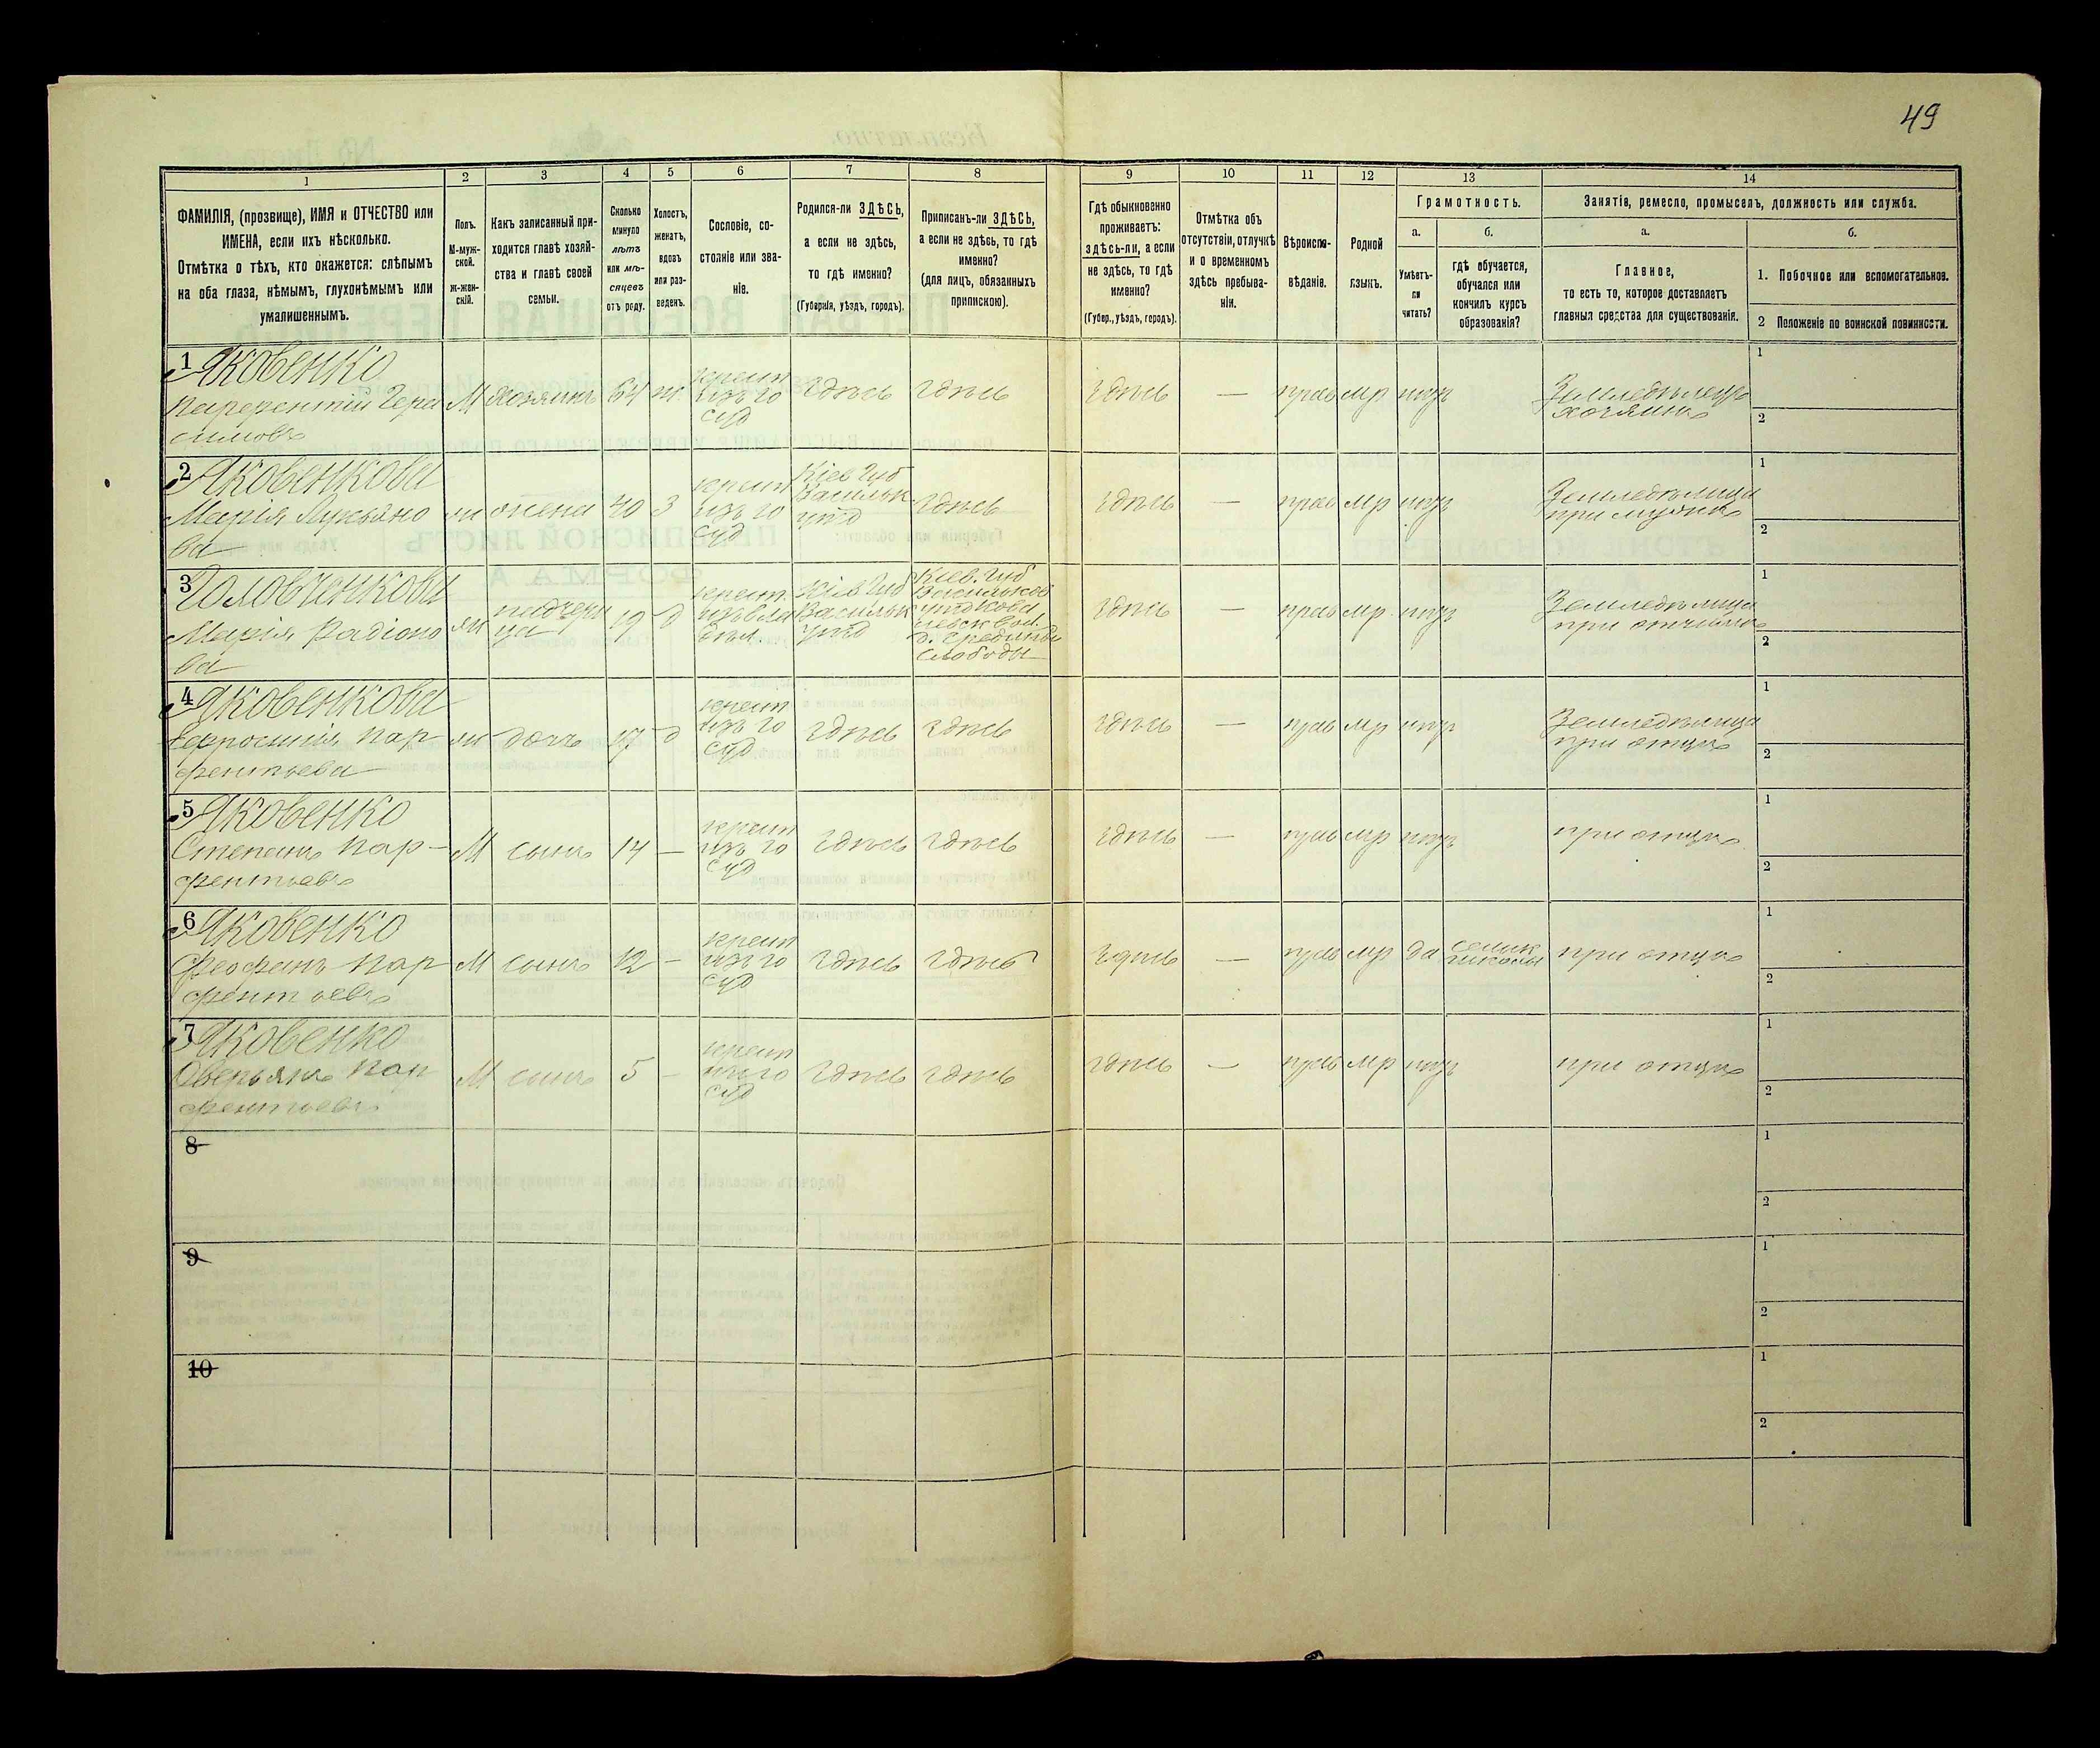 49
1
2
3
4
5
6
7
8
9
10
11
12
13
14
ФАМИЛІЯ, (прозвище), ИМЯ и ОТЧЕСТВО или
ИМЕНА, если ихъ нѣсколько.
Отмѣтка о тѣхъ, кто окажется: слѣпымъ
на оба глаза, нѣмымъ, глухонѣмымъ или
умалишеннымъ.
Полъ.
М-муж-
ской.
ж-жен-
скій.
Какъ записанный при-
ходится главѣ хозяй-
ства и главѣ своей
семьи.
Сколько
минуло
лѣтъ
или мѣ-
сяцевъ
отъ роду.
Холостъ,
женатъ,
вдовъ
или раз-
веденъ.
Сословіе, со-
стояніе или зва-
ніе.
Родился-ли ЗДѢСЬ,
а если не здѣсь,
то гдѣ именно?
(Губернія, уѣздъ, городъ).
Приписанъ-ли ЗДѢСЬ,
а если не здѣсь, то гдѣ
именно?
(для лицъ, обязанныхъ
припискою).
Гдѣ обыкновенно
проживаетъ:
здѣсь-ли, а если
не здѣсь, то гдѣ
именно?
(Губер., уѣздъ, городъ).
Отмѣтка объ
отсутствіи, отлучкѣ
и о временномъ
здѣсь пребыва-
ніи.
Вѣроиспо-
вѣданіе.
Родной
языкъ.
Грамотность.
а.
Умѣетъ-
ли
читать?
б.
гдѣ обучается,
обучался или
кончилъ курсъ
образованія?
Занятія, ремесло, промыселъ, должность или служба.
а.
Главное,
то есть то, которое доставляетъ
главныя средства для существованія.
б.
1. Побочное или вспомогательное.
2 Положеніе по воинской повинности.
1 Яковенко
Парфентій Гера
симовъ
М
хозяинъ
64
крест
изъ го
суд
здѣсь
здѣсь
здѣсь
—
прав
мр
нѣтъ
Земледѣлецъ
хозяинъ
1
2
2 Яковенкова
Марія Лукьяно
ва
ж
жена
40
З
крест
изъ го
суд
Кіев Губ
Васильк
уѣзд
здѣсь
здѣсь
—
прав
мр
нѣтъ
Земледѣлица
при мужѣ
1
2
3 Головченкова
Марія Радіоно
ва
ж
падчери
ца
19
д
крест.
изъ вла
дѣл.
Кіев Губ
Васильк
уѣзд
Кіев. Губ
Васильков
слободы
здѣсь
—
прав
мр
нѣтъ
Земледѣлица
при отчимѣ
1
2
4 Яковенкова
Ефросинія Пар
фентьева
ж
дочь
17
д
крест
изъ го
суд
здѣсь
здѣсь
здѣсь
—
прав
мр
нѣтъ
Земледѣлица
при отцѣ
1
2
5 Яковенко
Степанъ Пар-
фентьевъ
М
сынъ
14
—
крест
изъ го
суд
здѣсь
здѣсь
здѣсь
—
прав
мр
нѣтъ
при отцѣ
1
2
6 Яковенко
Феофанъ Пар
фентьевъ
М
сынъ
12
—
крест
изъ го
суд
здѣсь
здѣсь
здѣсь
—
прав
мр
да
школы
при отцѣ
1
2
7 Яковенко
Оверьянъ Пар
фентьевъ
М
сынъ
5
—
крест
изъ го
суд
здѣсь
здѣсь
здѣсь
—
прав
мр
нѣтъ
при отцѣ
1
2
8
1
2
9
1
2
10
1
2